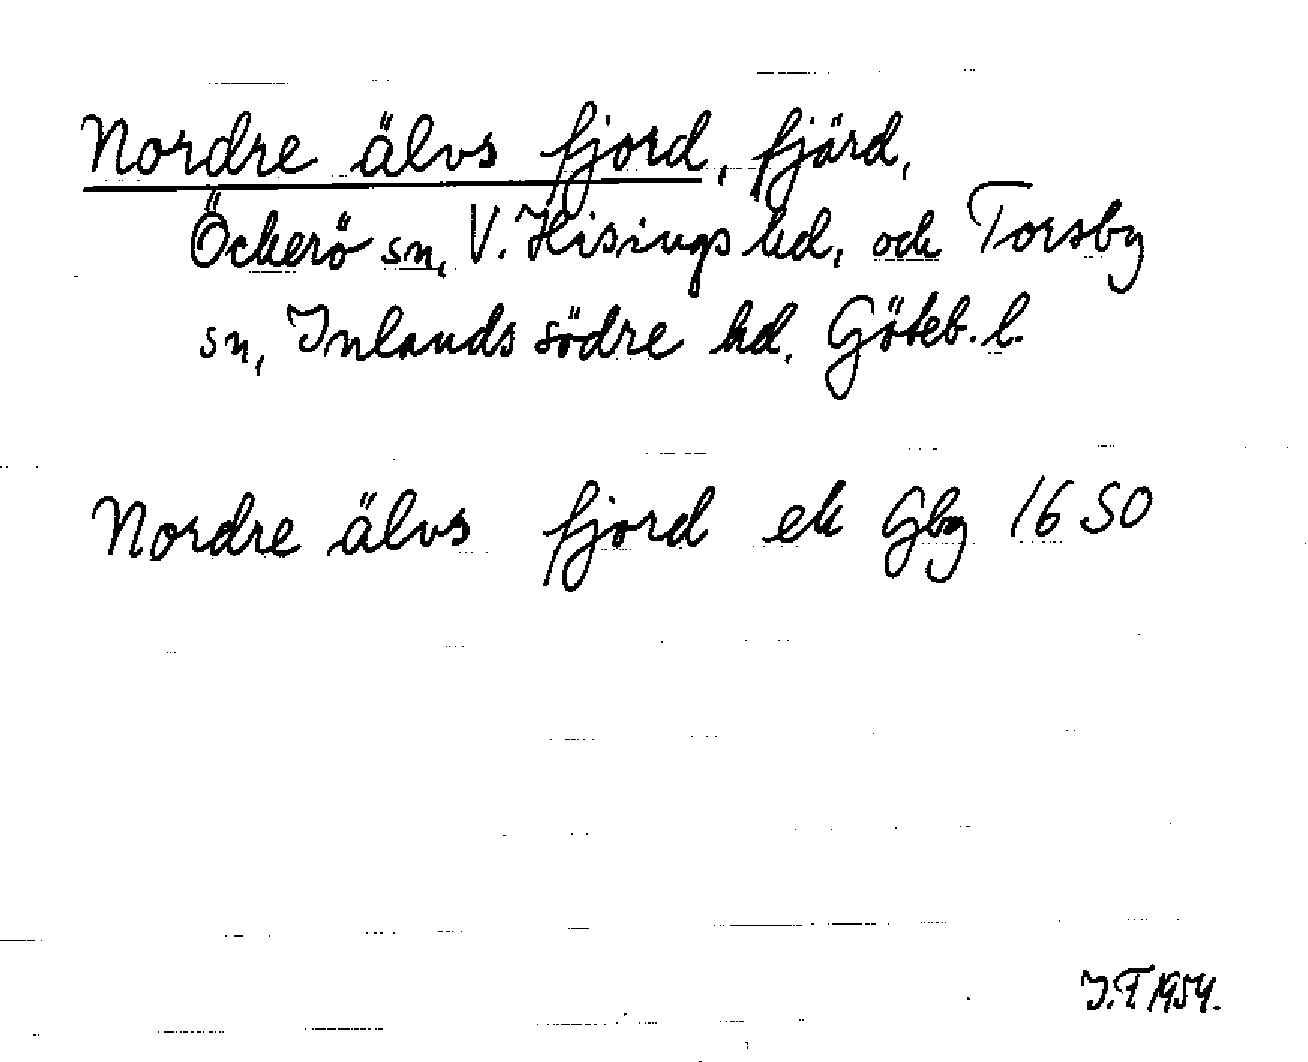 Nordre älvs fjord, fjärd,
Öckerö sn, V. Hisings hd, och Torsby
sn, Inlands södre hd, Göteb. l.
Nordre älvs fjord ek Gbg 1650
J.T 1954.